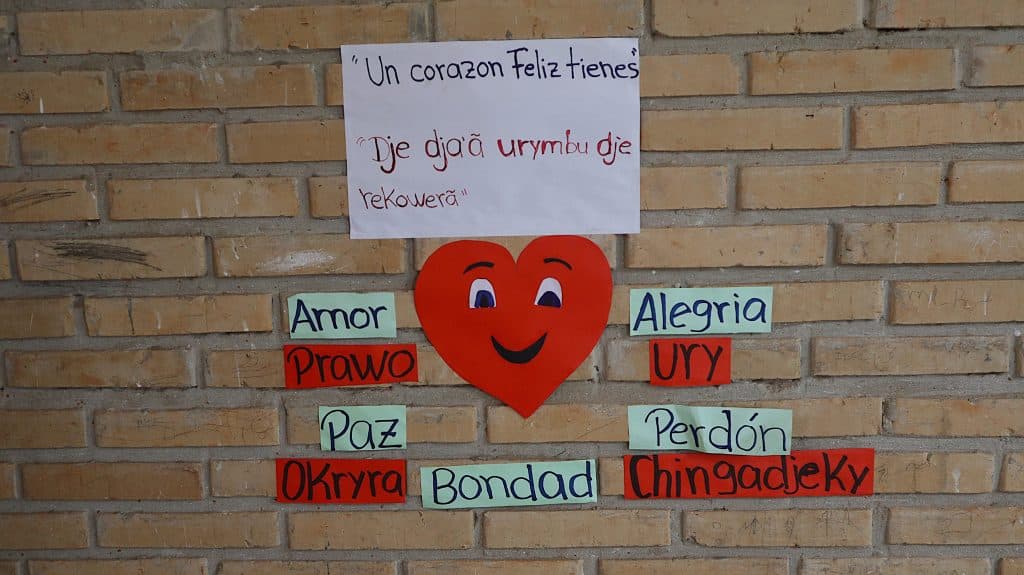 "Un corazon Feliz tienes"
"Dje dja'ã urymbu dje
rekowerã"
Amor
Alegria
Prawo
Ury
Paz
Perdón
Okryra
Bondad
Chingadjeky